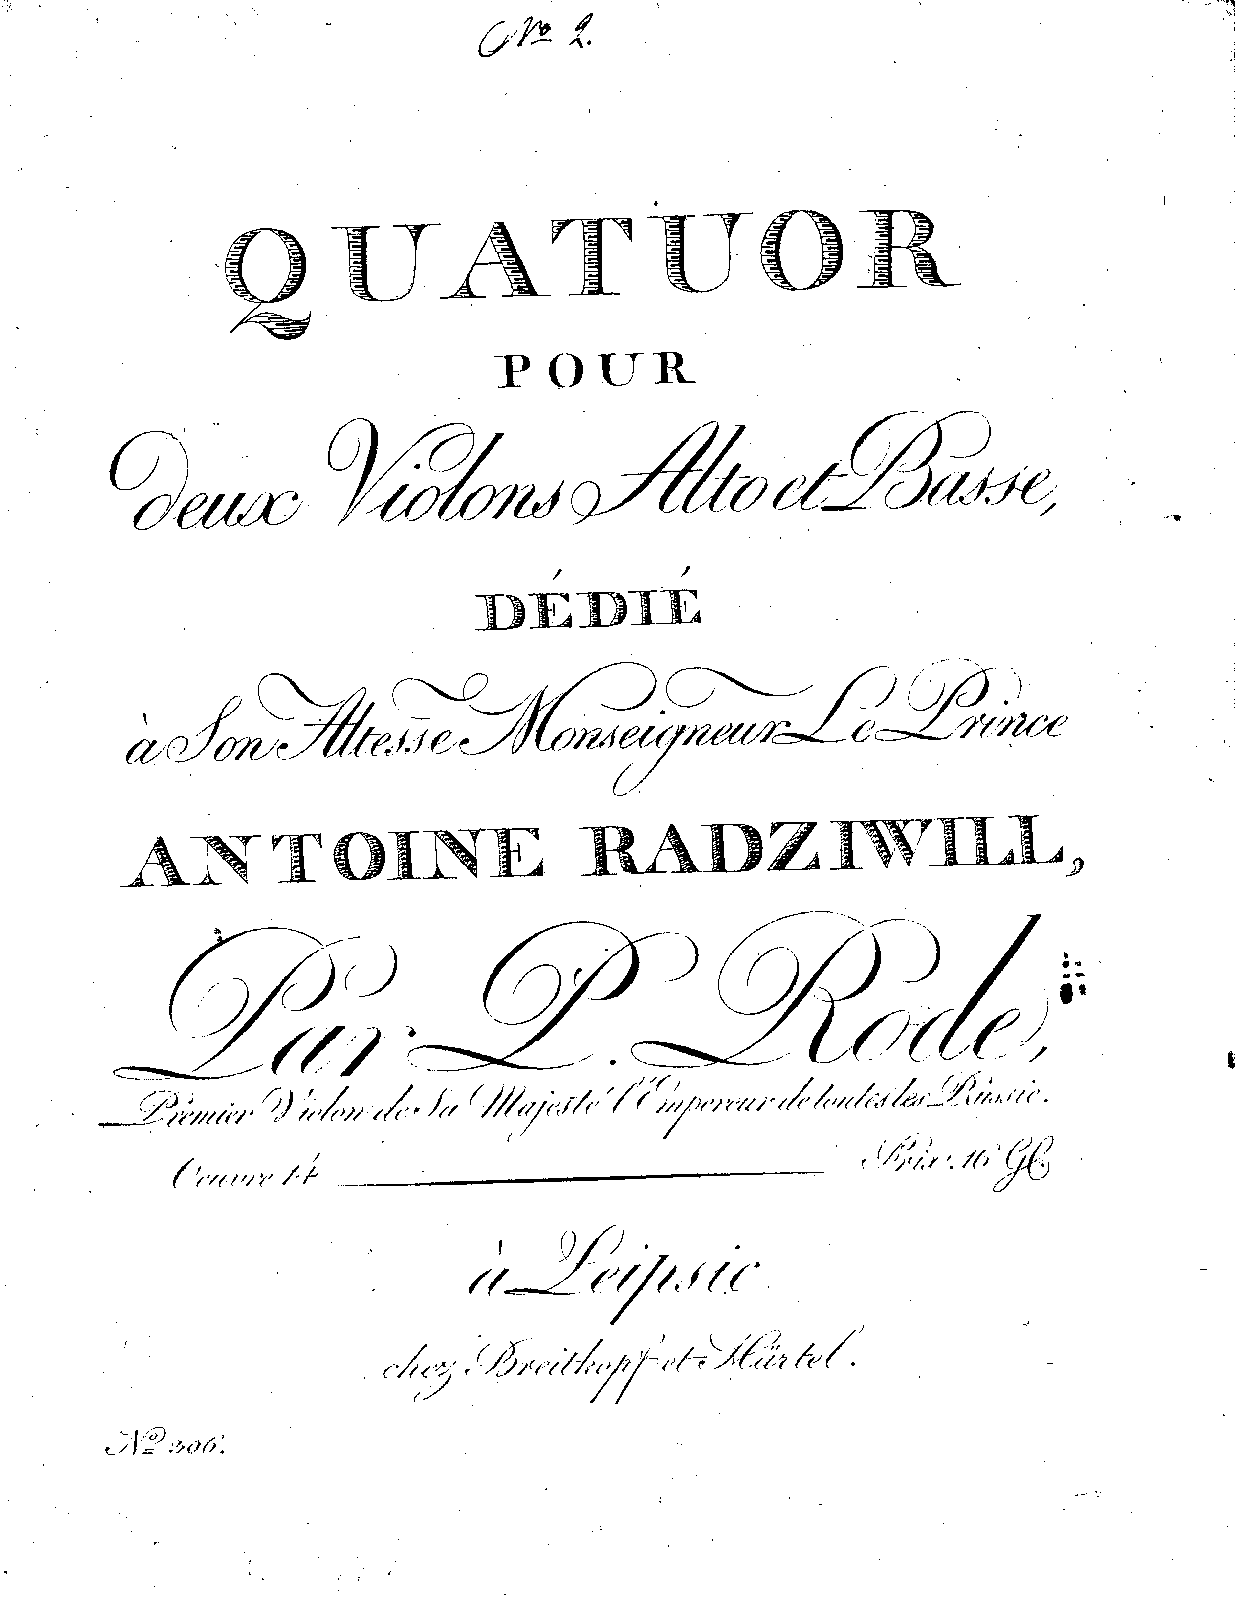 No 2.
QUATUOR
POUR
deux Violons Alto et Basse,
DÉDIÉ
à Son Altesse Monseigneur Le Prince
ANTOINE RADZIWILL,
Par P. Rode,
Premier Violon de Sa Majesté l'Empereur de toutes les Russie.
Oeuvre 14 Prix 16 Gl.
à Leipsic
chez Breitkopf et Härtel.
No 306.